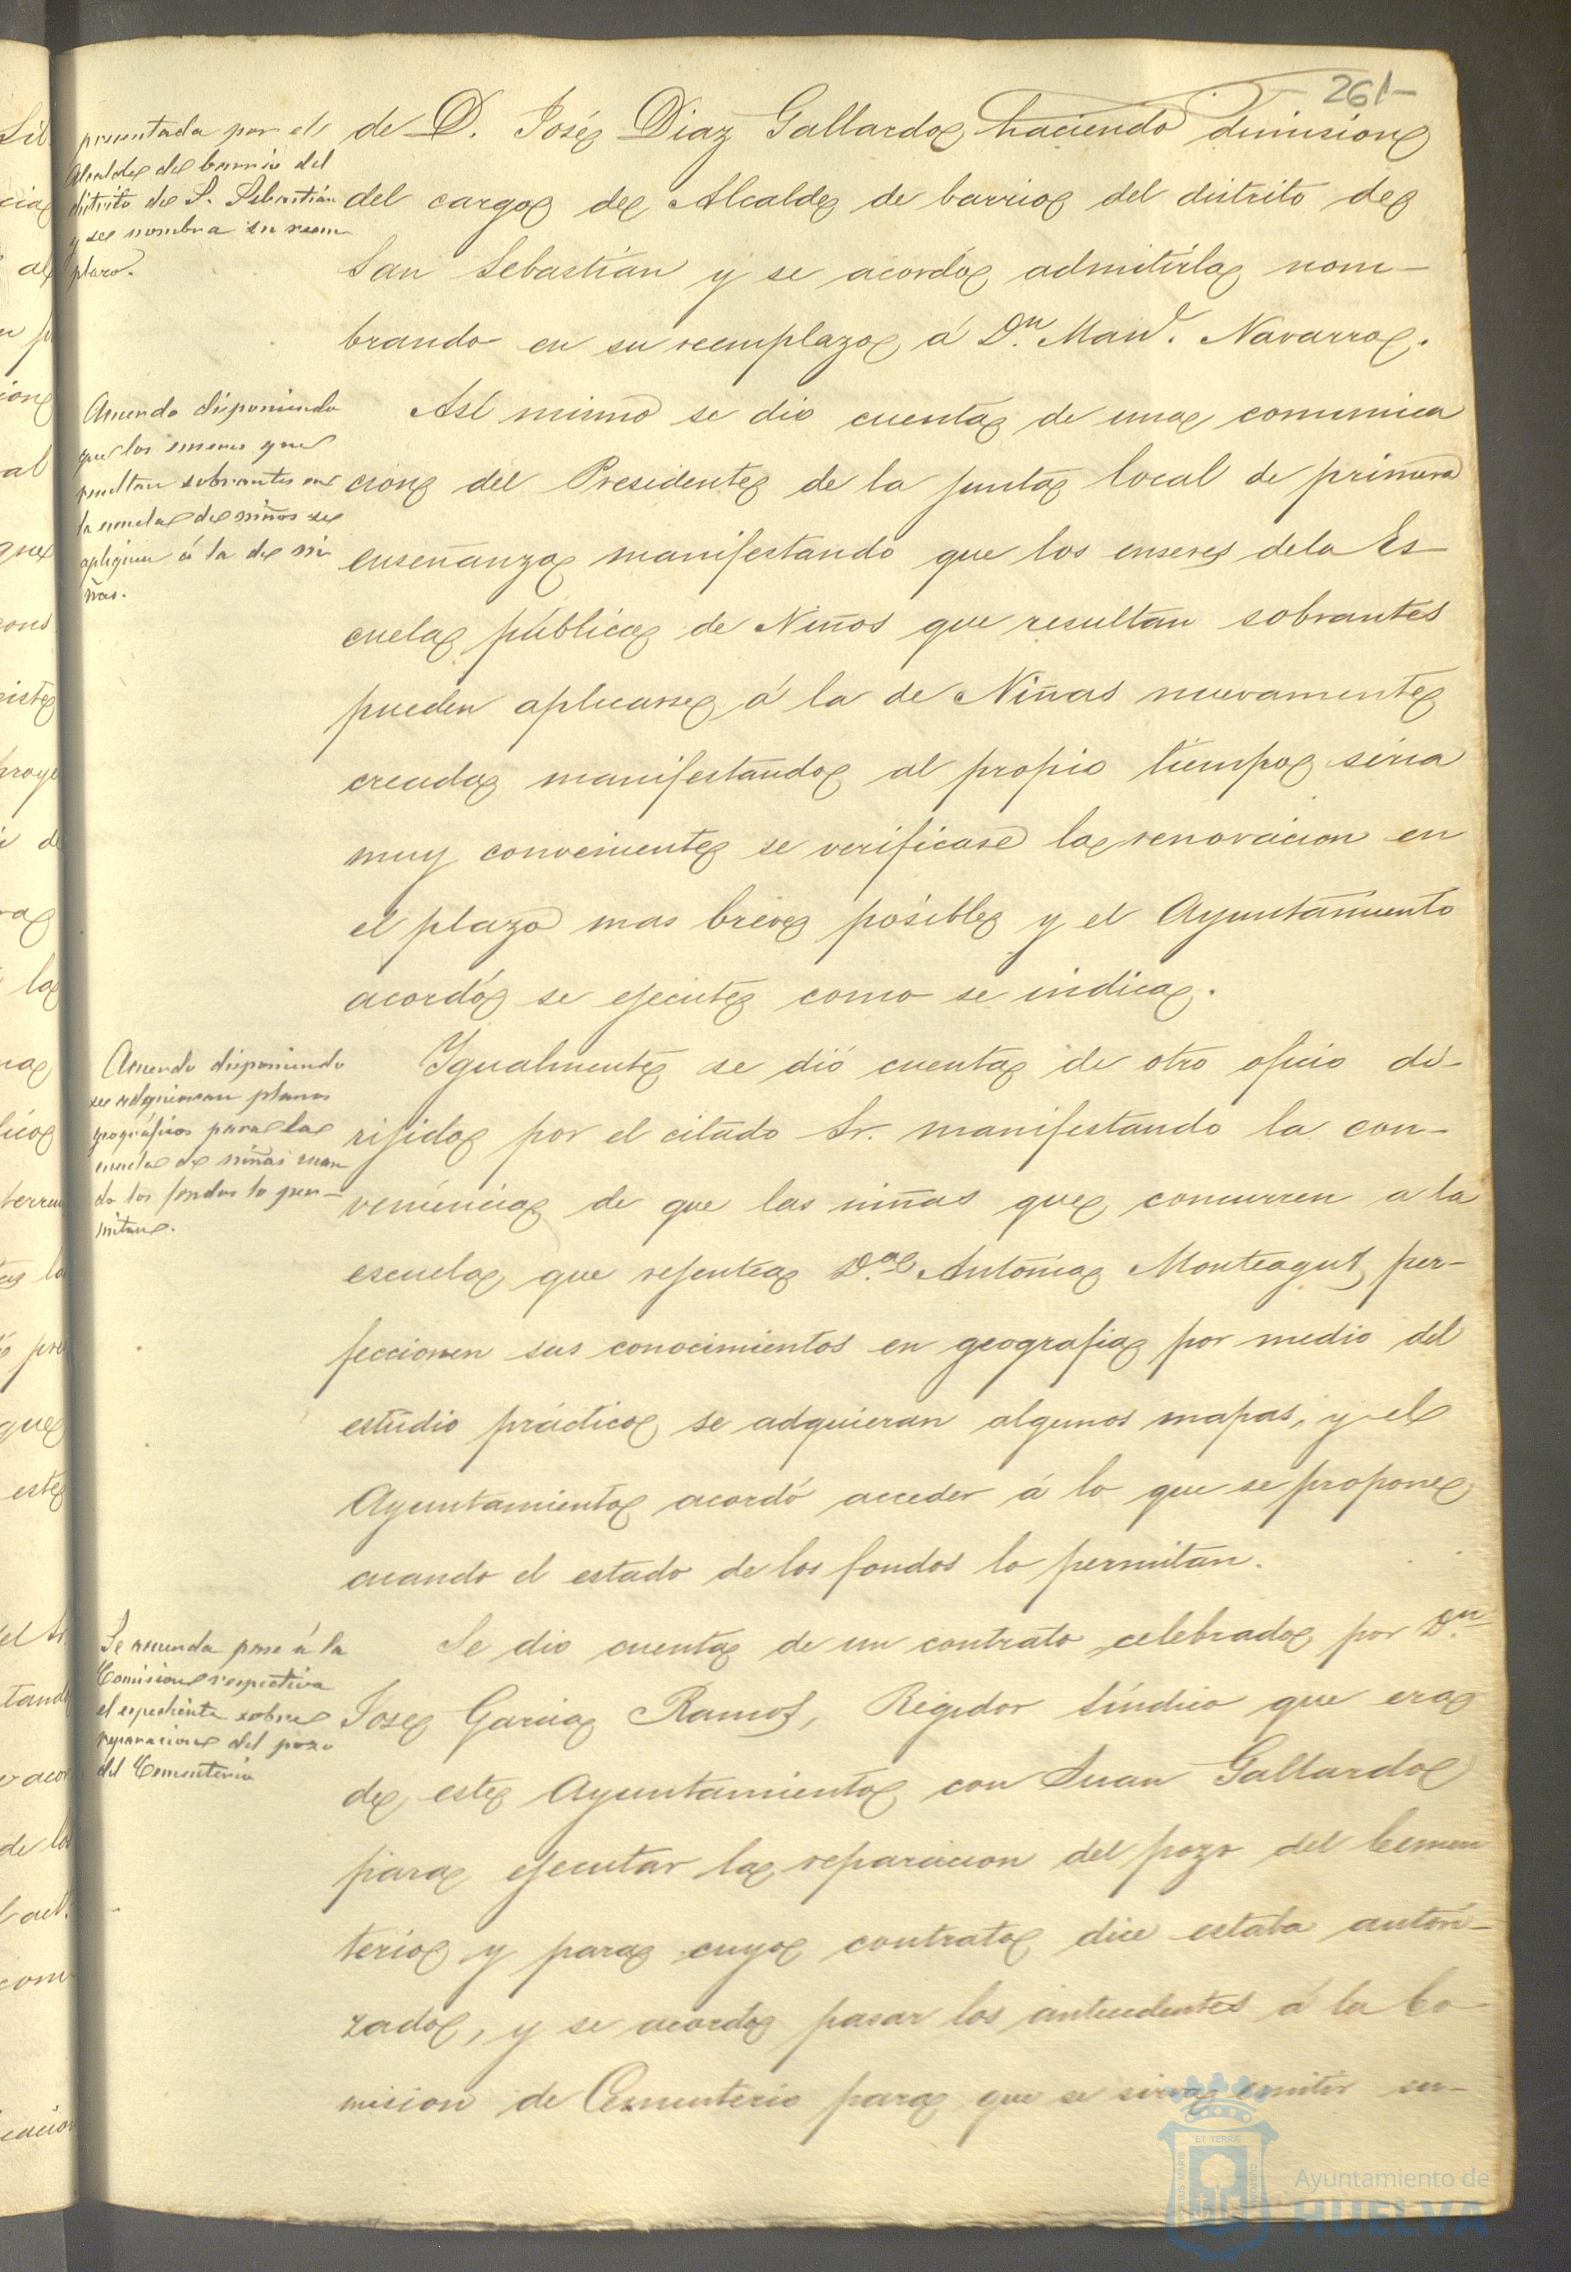 261-
presentada por el
Alcalde de barrio del
distrito de S. Sebastián
y se nombra su reem
plazo.
de D. José Diaz Gallardo haciendo dimision
del cargo de Alcalde de barrio del distrito de
San Sebastián y se acordó admitirla nom-
brando en su reemplazo á Dn. Manl. Navarro.
Acuerdo disponiendo
que los enseres que
resultan sobrantes en
la escuela de niños se
apliquen á la de ni
ñas.
Asi mismo se dio cuenta de una comunica
cion del Presidente de la junta local de primera
enseñanza manifestando que los enseres dela Es-
cuela pública de Niños que resultan sobrantes
pueden aplicarse á la de Niñas nuevamente
creada manifestando al propio tiempo seria
muy conveniente se verificase la renovacion en
el plazo mas breve posible y el Ayuntamiento
acordó se ejecute como se indica.
Acuerdo disponiendo
se adquieran planos
geográficos para la
escuela de niñas cuan
do los fondos lo per-
mitan.
Igualmente se dió cuenta de otro oficio di-
rijido por el citado Sr. manifestando la con-
veniencia de que las niñas que concurren a la
escuela que rejentea Da. Antonia Monteagut per-
feccionen sus conocimientos en geografia por medio del
estudio práctico se adquieran algunos mapas, y el
Ayuntamiento acordó acceder á lo que se propone
cuando el estado de los fondos lo permitan.
Se acuerda pase á la
Comision respectiva
el expediente sobre
reparacion del pozo
del Cementerio
Se dio cuenta de un contrato celebrado por Dn.
Jose Garcia Ramos, Regidor Síndico que era
de este Ayuntamiento con Juan Gallardo
para ejecutar la reparacion del pozo del Cemen
terio y para cuyo contrato dice estaba autori-
zado, y se acordó pasar los antecedentes á la Co-
mision de Cementerio para que se sirva emitir su-
Ayuntamiento de
HUELVA